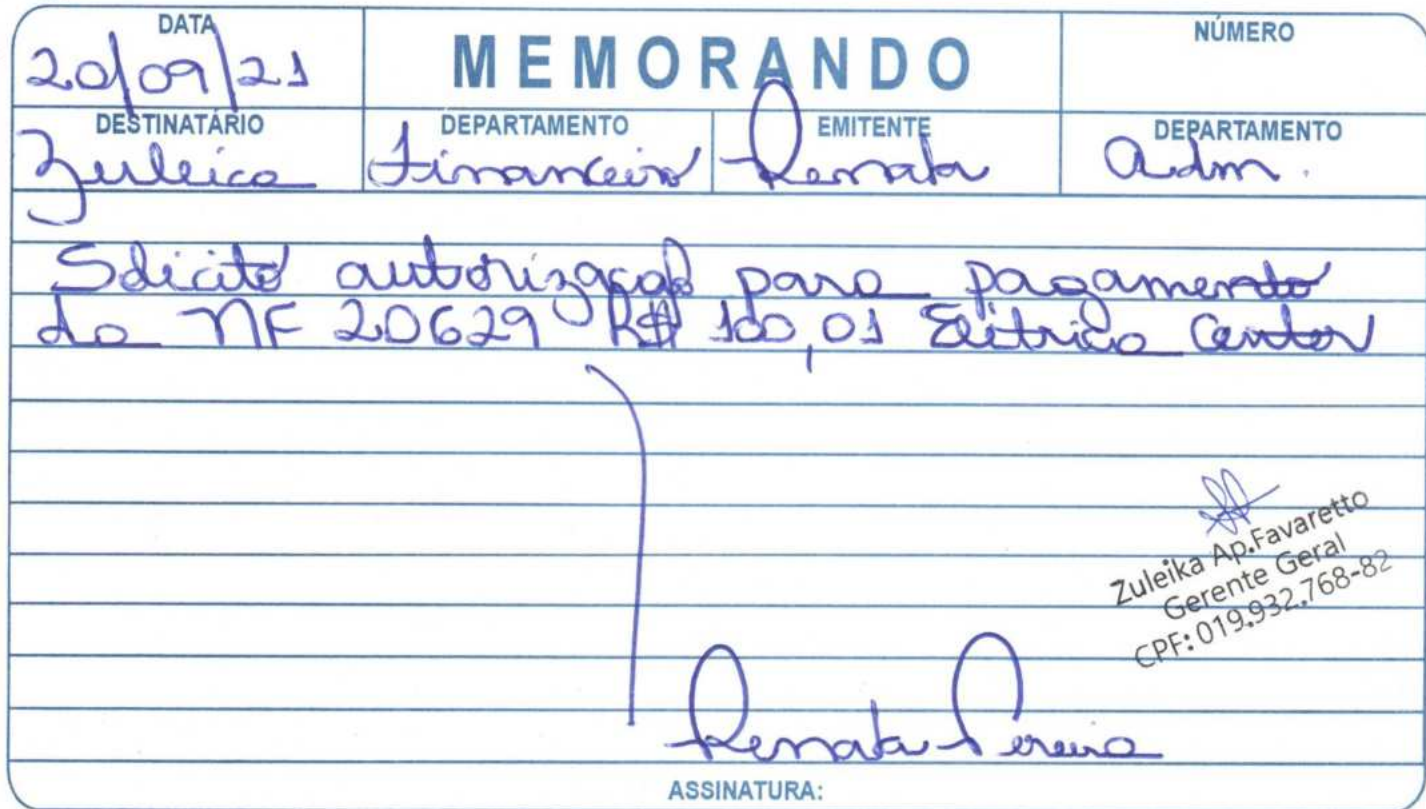 DATA
20/09/21
MEMORANDO
NÚMERO
DESTINATÁRIO
Zuleica
DEPARTAMENTO
Financeiro
EMITENTE
Renata
DEPARTAMENTO
Adm.
Solicito autorização para pagamento
da NF 20629 R$ 100,01 Elétrica Cantor
Zuleika Ap.Favaretto
Gerente Geral
CPF: 019.932.768-82
Renata Pereira
ASSINATURA: